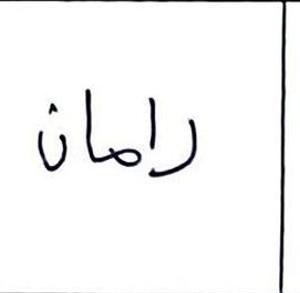 رامان